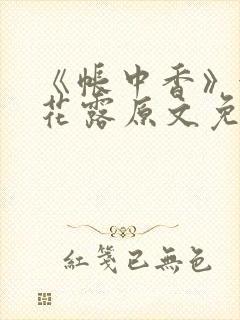 《帐中香》
花露原文免
红笺已無色